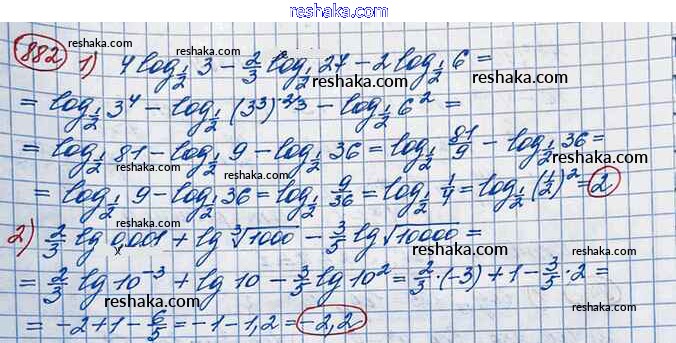 reshaka.com
882 1) 4 log_{1/2} 3 − 2/3 log_{1/2} 27 − 2 log_{1/2} 6 =
= log_{1/2} 3⁴ − log_{1/2} (3³)^{2/3} − log_{1/2} 6² =
= log_{1/2} 81 − log_{1/2} 9 − log_{1/2} 36 = log_{1/2} 81/9 − log_{1/2} 36 =
= log_{1/2} 9 − log_{1/2} 36 = log_{1/2} 9/36 = log_{1/2} 1/4 = log_{1/2} (1/2)² = 2
2) 2/3 lg 0,001 + lg ∛1000 − 3/5 lg √10000 =
= 2/3 lg 10⁻³ + lg 10 − 3/5 lg 10² = 2/3 · (−3) + 1 − 3/5 · 2 =
= −2 + 1 − 6/5 = −1 − 1,2 = −2,2
reshaka.com
reshaka.com
reshaka.com
reshaka.com
reshaka.com
reshaka.com
reshaka.com
reshaka.com
reshaka.com
reshaka.com
reshaka.com
reshaka.com
reshaka.com
reshaka.com